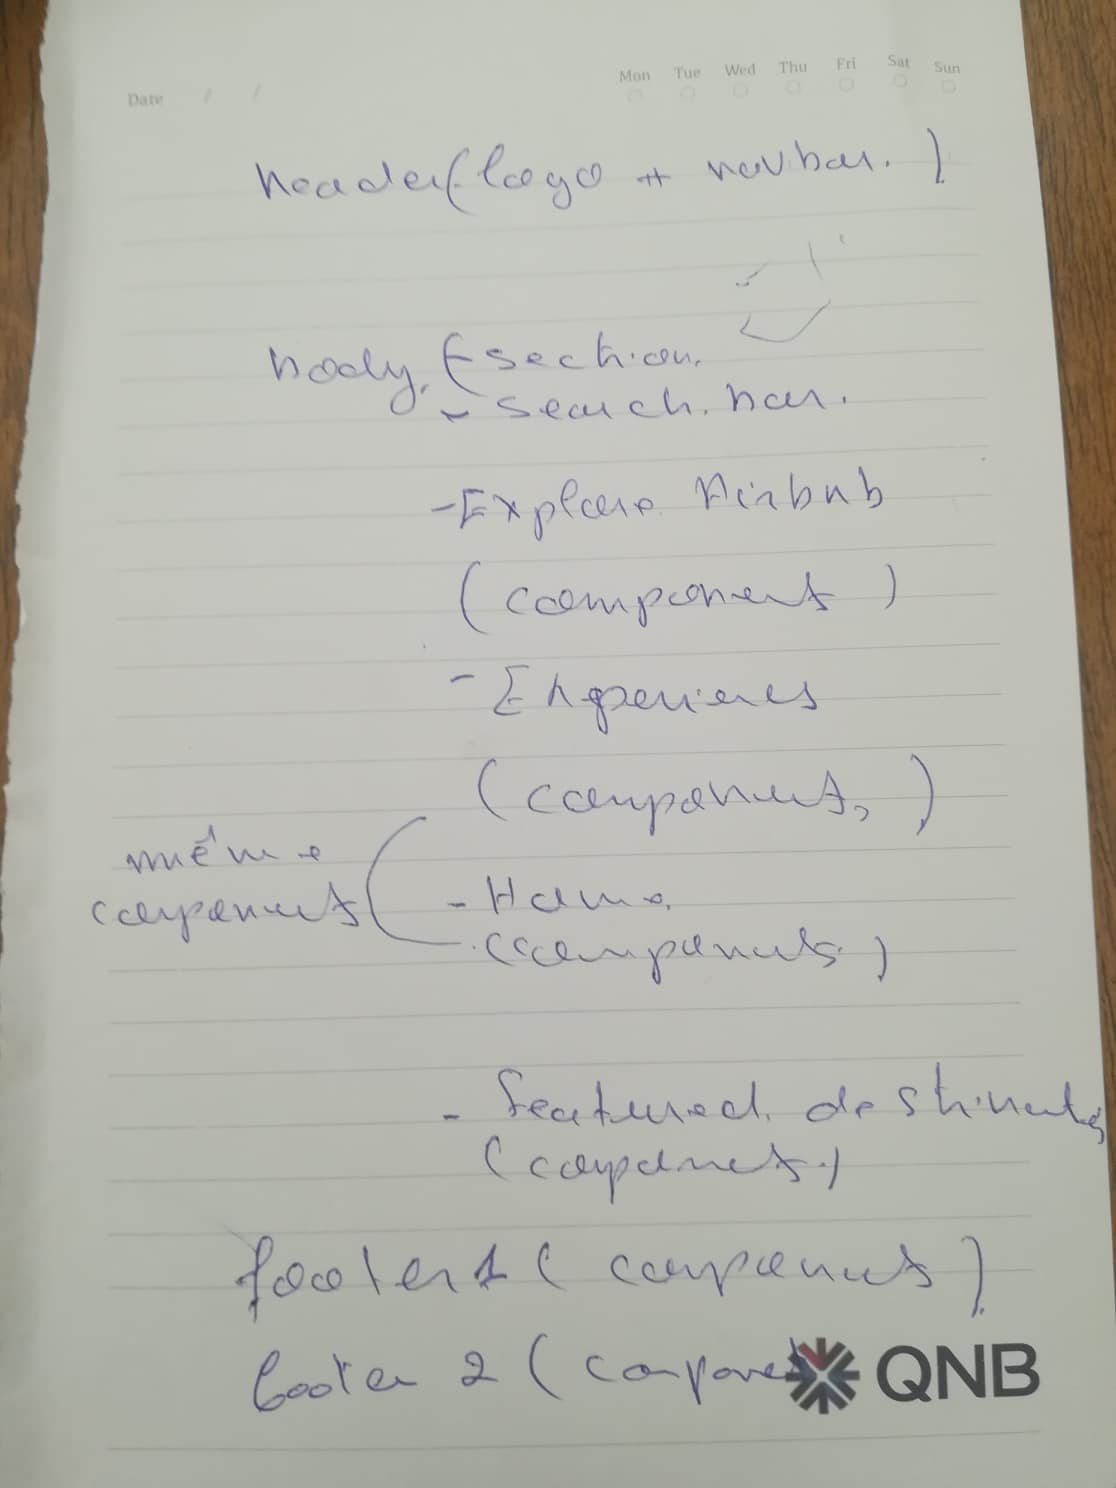 Date / /
Mon Tue Wed Thu Fri Sat Sun
header (logo + navbar.)
body. (section.
- search. bar.
- Explore Airbnb
(component)
- Experiences
(components)
même
components
- Home
(components)
- featured. destinat
(components.)
footer 1 (components)
footer 2 (component
QNB